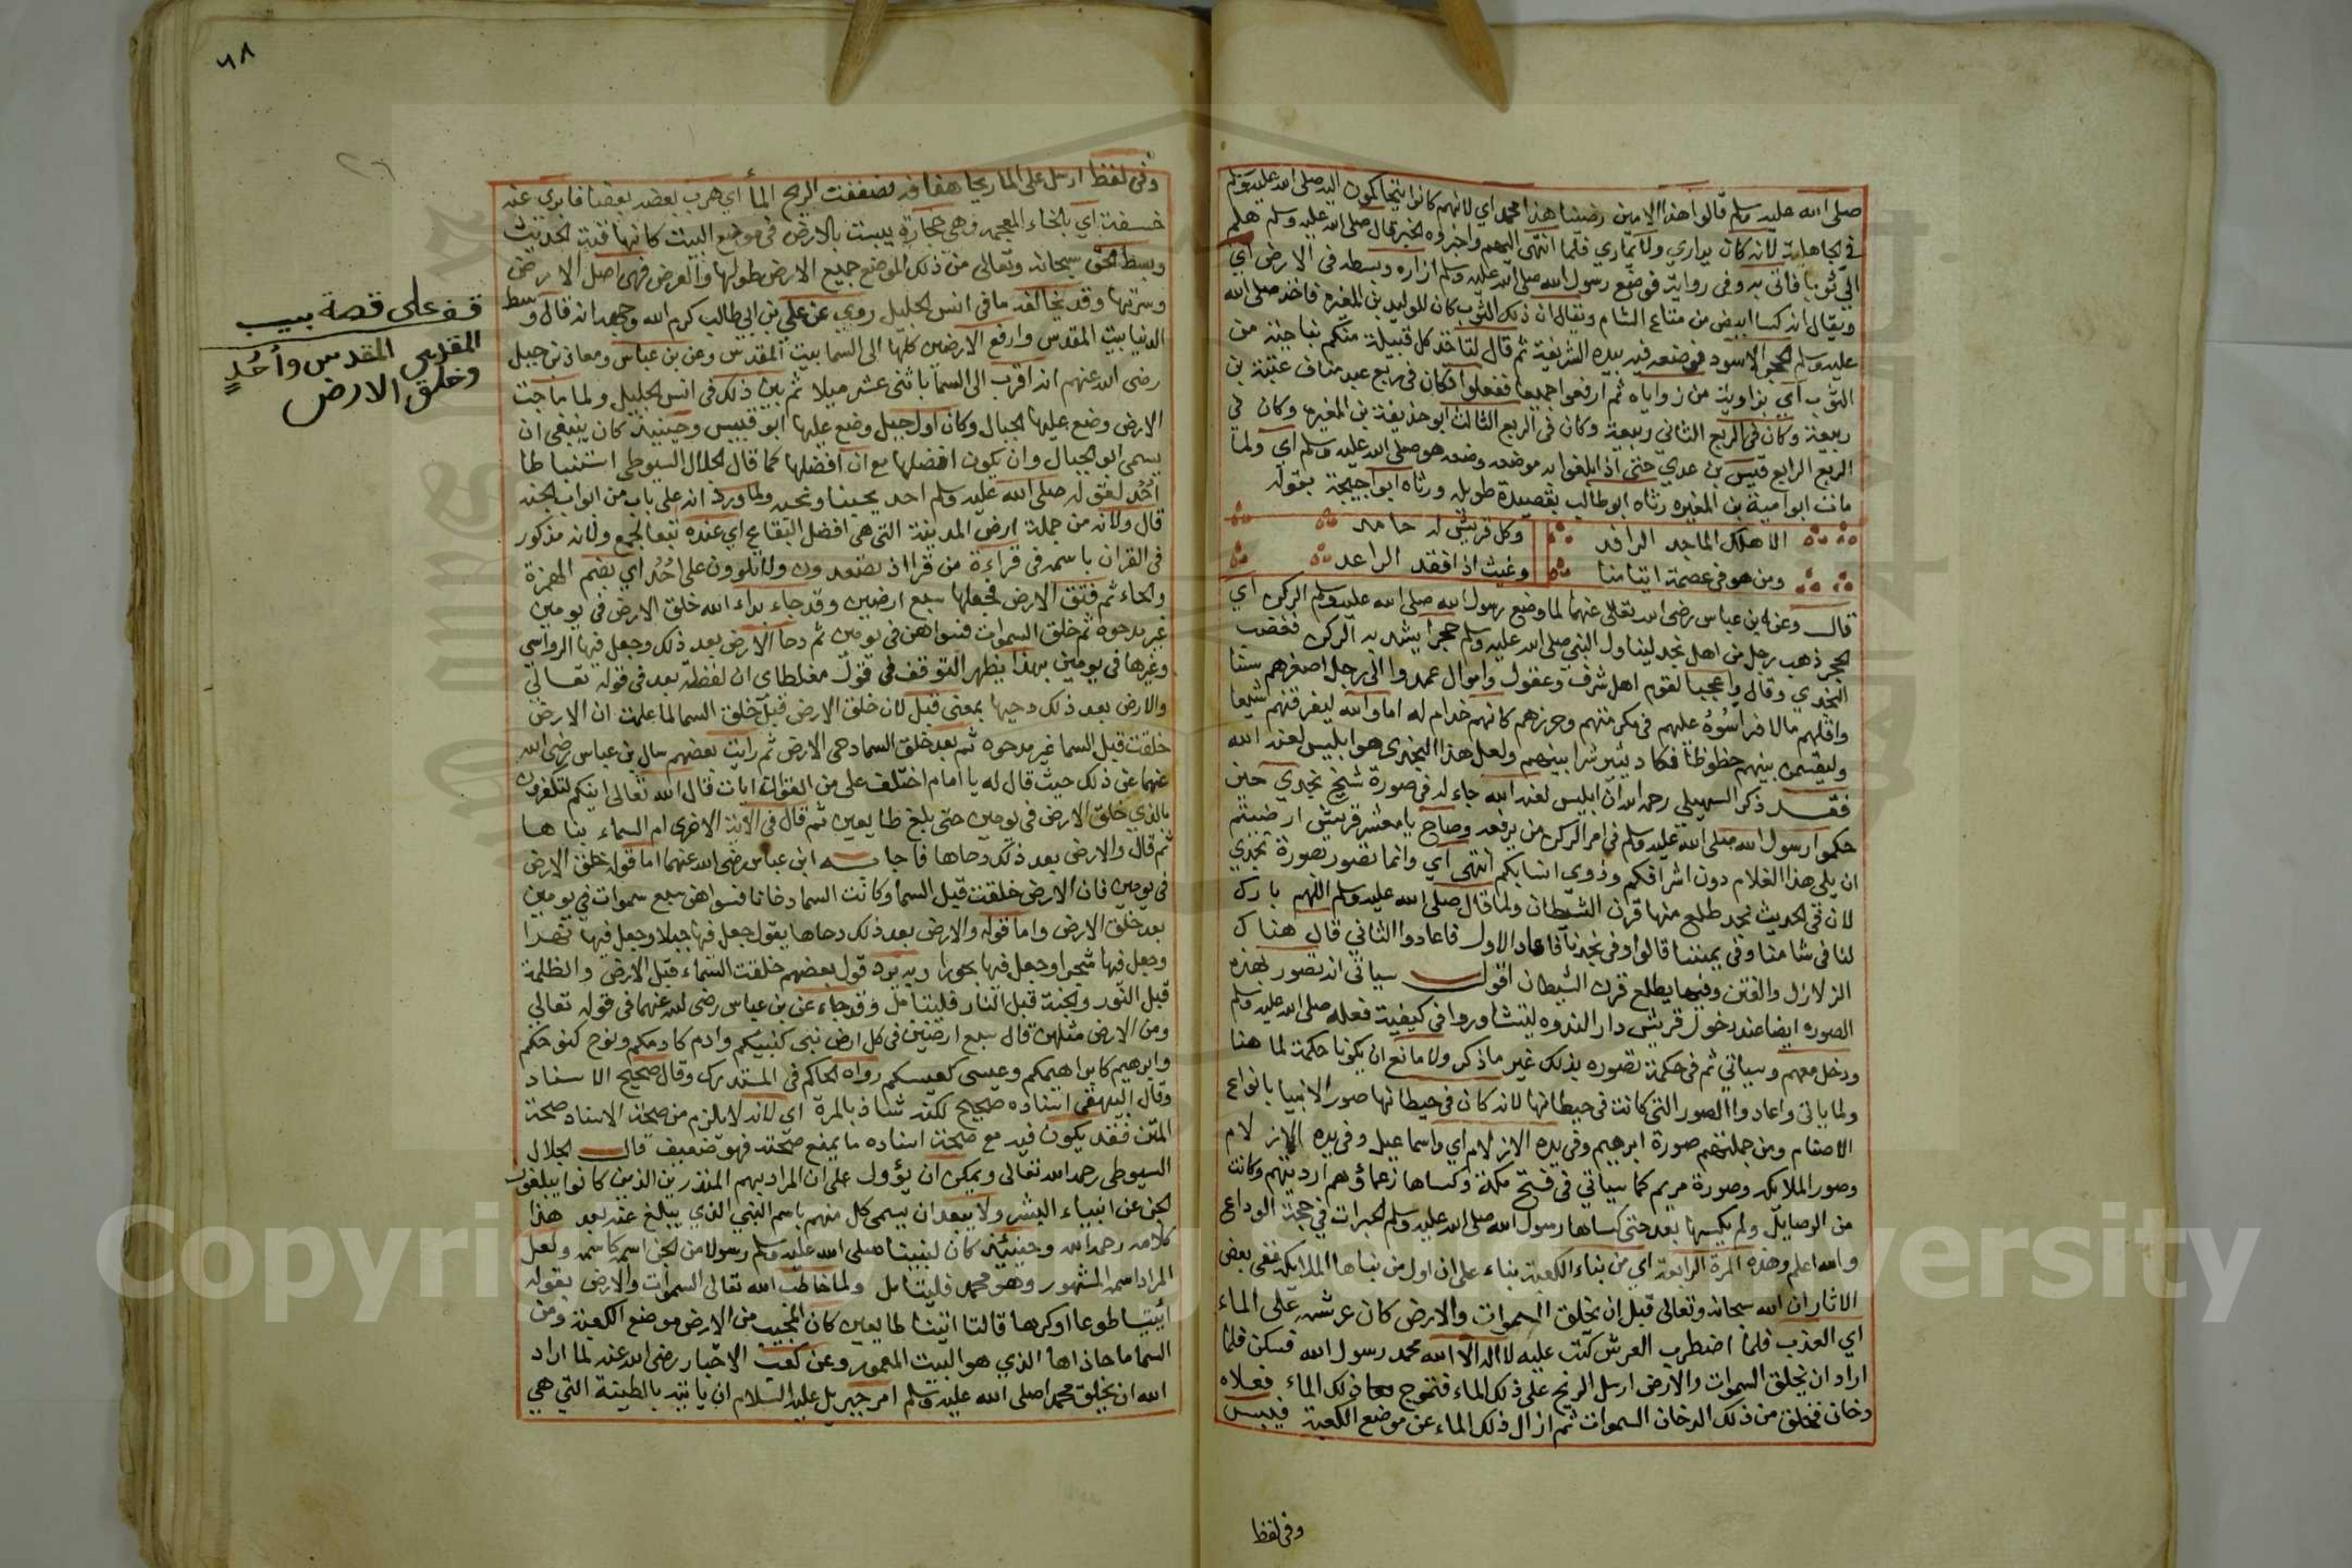 صلى الله عليه وسلم قالوا هذا الامين رضينا هذا محمد اي لانهم كانوا يتحاكمون اليه صلى الله عليه وسلم
في الجاهلية لانه كان لا يداري ولا يماري فلما انتهى اليهم واخبروه الخبر قال صلى الله عليه وسلم هلم
الي ثوبا فاتي به وفي رواية فوضع رسول الله صلى الله عليه وسلم ازاره وبسطه في الارض اي
ويقال انه كسا ابيض من متاع الشام ويقال ان ذلك الثوب كان للوليد بن المغيرة فاخذ صلى الله
عليه وسلم الحجر الاسود فوضعه فيه بيده الشريفة ثم قال لتاخذ كل قبيلة منكم بناحية من
الثوب اي بزاوية من زواياه ثم ارفعوا جميعا ففعلوا فكان في ربع عبد مناف عتبة بن
ربيعة وكان في الربع الثاني زمعة وكان في الربع الثالث ابو حذيفة بن المغيرة وكان في
الربع الرابع قيس بن عدي حتى اذا بلغوا به موضعه وضعه هو صلى الله عليه وسلم اي ولما
مات ابو امية بن المغيره رثاه ابو طالب بقصيدة طويله ورثاه ابو اجيحة بقوله
الا هلك الماجد الرافد وكل قريش له حامد
ومن هو في عصمة ايتامنا وغيث اذا فقد الراعد
قال وعن ابن عباس رضي الله تعالى عنهما لما وضع رسول الله صلى الله عليه وسلم الركن اي
الحجر ذهب رجل من اهل نجد ليناول النبي صلى الله عليه وسلم حجرا يشد به الركن فغضب
النجدي وقال واعجبا لقوم اهل شرف وعقول واموال عمدوا الى رجل اصغرهم سنا
واقلهم مالا فراسوه عليهم في مكرمتهم وحرزهم كانهم خدام له اما والله ليفرقنهم شيعا
وليقسمن بينهم حظوظا فكاد يثير شرا بينهم ولعل هذا النجدي هو ابليس لعنه الله
فقد ذكر السهيلي رحمه الله ان ابليس لعنه الله جاء له في صورة شيخ نجدي حين
حكموا رسول الله صلى الله عليه وسلم في امر الركن من يرفعه وصاح يا معشر قريش ارضيتم
ان يلي هذا الغلام دون اشرافكم وذوي انسابكم انتهى اي وانما تصور بصورة نجدي
لان في الحديث نجد طلع منها قرن الشيطان ولما قال صلى الله عليه وسلم اللهم بارك
لنا في شامنا وفي يمننا قالوا وفي نجدنا فاعاد الاول فاعادوا الثاني قال هناك
الزلازل والفتن وفيها يطلع قرن الشيطان اقول سياتي انه تصور بهذه
الصوره ايضا عند دخول قريش دار الندوه ليتشاوروا في كيفية فعله صلى الله عليه وسلم
ودخل معهم وسياتي ثم في حكمة تصوره بذلك غير ما ذكر ولا مانع ان يكونا حكمة لما هنا
ولما ياتي واعادوا الصور التي كانت في حيطانها لانه كان في حيطانها صور الانبيا بانواع
الاصنام ومن جملتهم صورة ابرهيم وفي يده الازلام اي واسماعيل وفي يده الازلام
وصور الملائكة وصورة مريم كما سياتي في فتح مكة وكساها زعماؤهم ارديتهم وكانت
من الوصايل ولم يكسها بعد حتى كساها رسول الله صلى الله عليه وسلم الحبرات في حجة الوداع
والله اعلم وهذه المرة الرابعة اي من بناء الكعبة بناء على ان اول من بناها الملائكة ففي بعض
الاثار ان الله سبحانه وتعالى قبل ان يخلق السموات والارض كان عرشه على الماء
اي العذب فلما اضطرب العرش كتب عليه لا اله الا الله محمد رسول الله فسكن فلما
اراد ان يخلق السموات والارض ارسل الريح على ذلك الماء فتموج ذلك الماء فعلاه
دخان فخلق من ذلك الدخان السموات ثم ازال ذلك الماء عن موضع الكعبة فيبس
وفي لفظ
٦٨
٢٦
وفي لفظ ارسل على الما ريحا هفافة فصفقت الريح الما اي ضرب بعضه بعضا فابرز عنه
خسفة اي بالخاء المعجمه وهي حجارة يبست بالارض في موضع البيت كانها قبة الحديث
وبسط الحق سبحانه وتعالى من ذلك الموضع جميع الارض طولها والعرض فهي اصل الارض
وسرتها وقد يخالفه ما في انس الجليل روي عن علي بن ابي طالب كرم الله وجهه انه قال وسط
الدنيا بيت المقدس وارفع الارضين كلها الى السما بيت المقدس وعن بن عباس ومعاذ بن جبل
رضي الله عنهم انه اقرب الى السما باثني عشر ميلا ثم بين ذلك في انس الجليل ولما ماجت
الارض وضع عليها الجبال وكان اول جبل وضع عليها ابو قبيس وحينئذ كان ينبغي ان
يسمى ابو الجبال وان يكون افضلها مع ان افضلها كما قال الجلال السيوطي استنباطا
احد لقوله صلى الله عليه وسلم احد يحبنا ونحبه ولما ورد انه على باب من ابواب الجنه
قال ولانه من جملة ارض المدينة التي هي افضل البقاع اي عنده تبعا لجمع ولانه مذكور
في القران باسمه في قراءة من قرا اذ تصعدون ولا تلوون على احد اي بضم الهمزة
والحاء ثم فتق الارض فجعلها سبع ارضين وقد جاء بداء الله خلق الارض في يومين
غير مدحوه ثم خلق السموات فسواهن في يومين ثم دحا الارض بعد ذلك وجعل فيها الرواسي
وغيرها في يومين بهذا يظهر التوقف في قول مغلطاي ان لفظة بعد في قوله تعالى
والارض بعد ذلك دحيها بمعنى قبل لان خلق الارض قبل خلق السما لما علمت ان الارض
خلقت قبل السما غير مدحوه ثم بعد خلق السما دحى الارض ثم رايت بعضهم سال بن عباس رضي الله
عنهما عن ذلك حيث قال له يا امام اختلف علي من القران ايات قال الله تعالى اينكم لتكفرون
بالذي خلق الارض في يومين حتى بلغ طايعين ثم قال في الاية الاخرى ام السماء بناها
ثم قال والارض بعد ذلك دحاها فاجابه ابن عباس رضي الله عنهما اما قوله خلق الارض
في يومين فان الارض خلقت قبل السما وكانت السما دخانا فسواهن سبع سموات في يومين
بعد خلق الارض واما قوله والارض بعد ذلك دحاها يقول جعل فيها جبلا وجعل فيها نهرا
وجعل فيها شجرا وجعل فيها بحورا وبه يرد قول بعضهم خلقت السماء قبل الارض والظلمة
قبل النور والجنة قبل النار فليتامل وقد جاء عن بن عباس رضي الله عنهما في قوله تعالى
ومن الارض مثلهن قال سبع ارضين في كل ارض نبي كنبيكم وادم كادمكم ونوح كنوحكم
وابرهيم كابراهيمكم وعيسى كعيسكم رواه الحاكم في المستدرك وقال صحيح الاسناد
وقال البيهقي اسناده صحيح لكنه شاذ بالمرة اي لانه لا يلزم من صحة الاسناد صحة
المتن فقد يكون فيه مع صحة اسناده ما يمنع صحته فهو ضعيف قال الجلال
السيوطي رحمه الله تعالى ويمكن ان يؤول على ان المراد بهم المنذرين الذين كانوا يبلغون
الجن عن انبياء البشر ولا يبعد ان يسمى كل منهم باسم النبي الذي يبلغ عنه بعد هذا
كلامه رحمه الله وحينئذ كان لنبينا صلى الله عليه وسلم رسولا من الجن اسمه كاسمه ولعل
المراد اسمه المشهور وهو محمد فليتامل ولما خاطب الله تعالى السموات والارض بقوله
ائتيا طوعا او كرها قالتا اتينا طايعين كان المجيب من الارض موضع الكعبة ومن
السما ما حاذاها الذي هو البيت المعمور وعن كعب الاحبار رضي الله عنه لما اراد
الله ان يخلق محمدا صلى الله عليه وسلم امر جبريل عليه السلام ان ياتيه بالطينة التي هي
قف على قصة بيت
المقدس المقدس وأُحُدٍ
وخلق الارض
Copyright © King Saud University